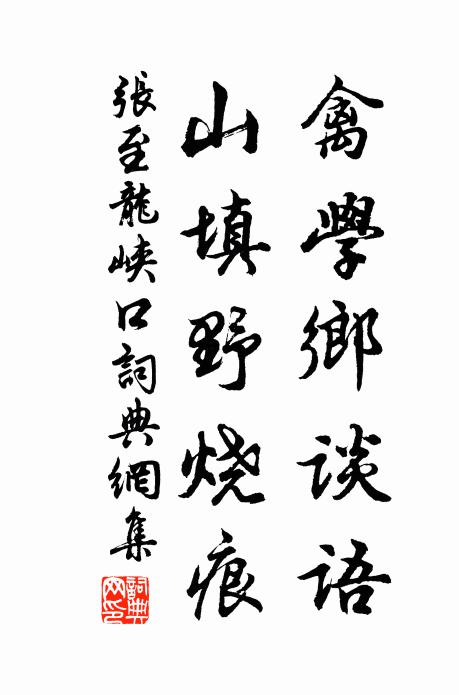 禽學鄉談語
山填野烧痕
張至龍峽口詞典網集
詞典网印